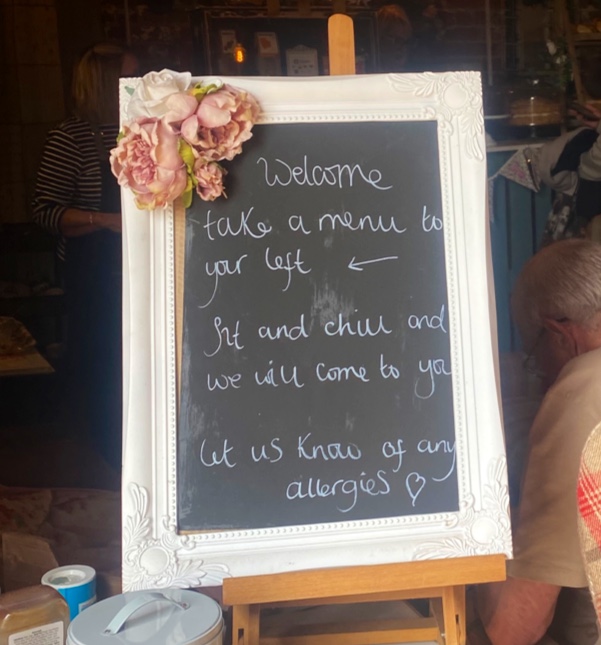 Welcome
take a menu to
your left ←
Sit and chill and
we will come to you
Let us know of any
allergies ♡